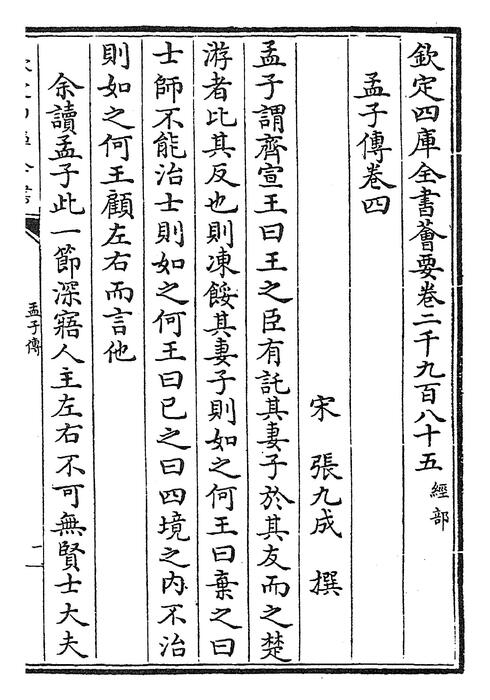 欽定四庫全書薈要卷二千九百八十五 經部
孟子傳卷四
宋 張九成 撰
孟子謂齊宣王曰王之臣有託其妻子於其友而之楚
游者比其反也則凍餒其妻子則如之何王曰棄之曰
士師不能治士則如之何王曰已之曰四境之內不治
則如之何王顧左右而言他
余讀孟子此一節深寤人主左右不可無賢士大夫
孟子傳